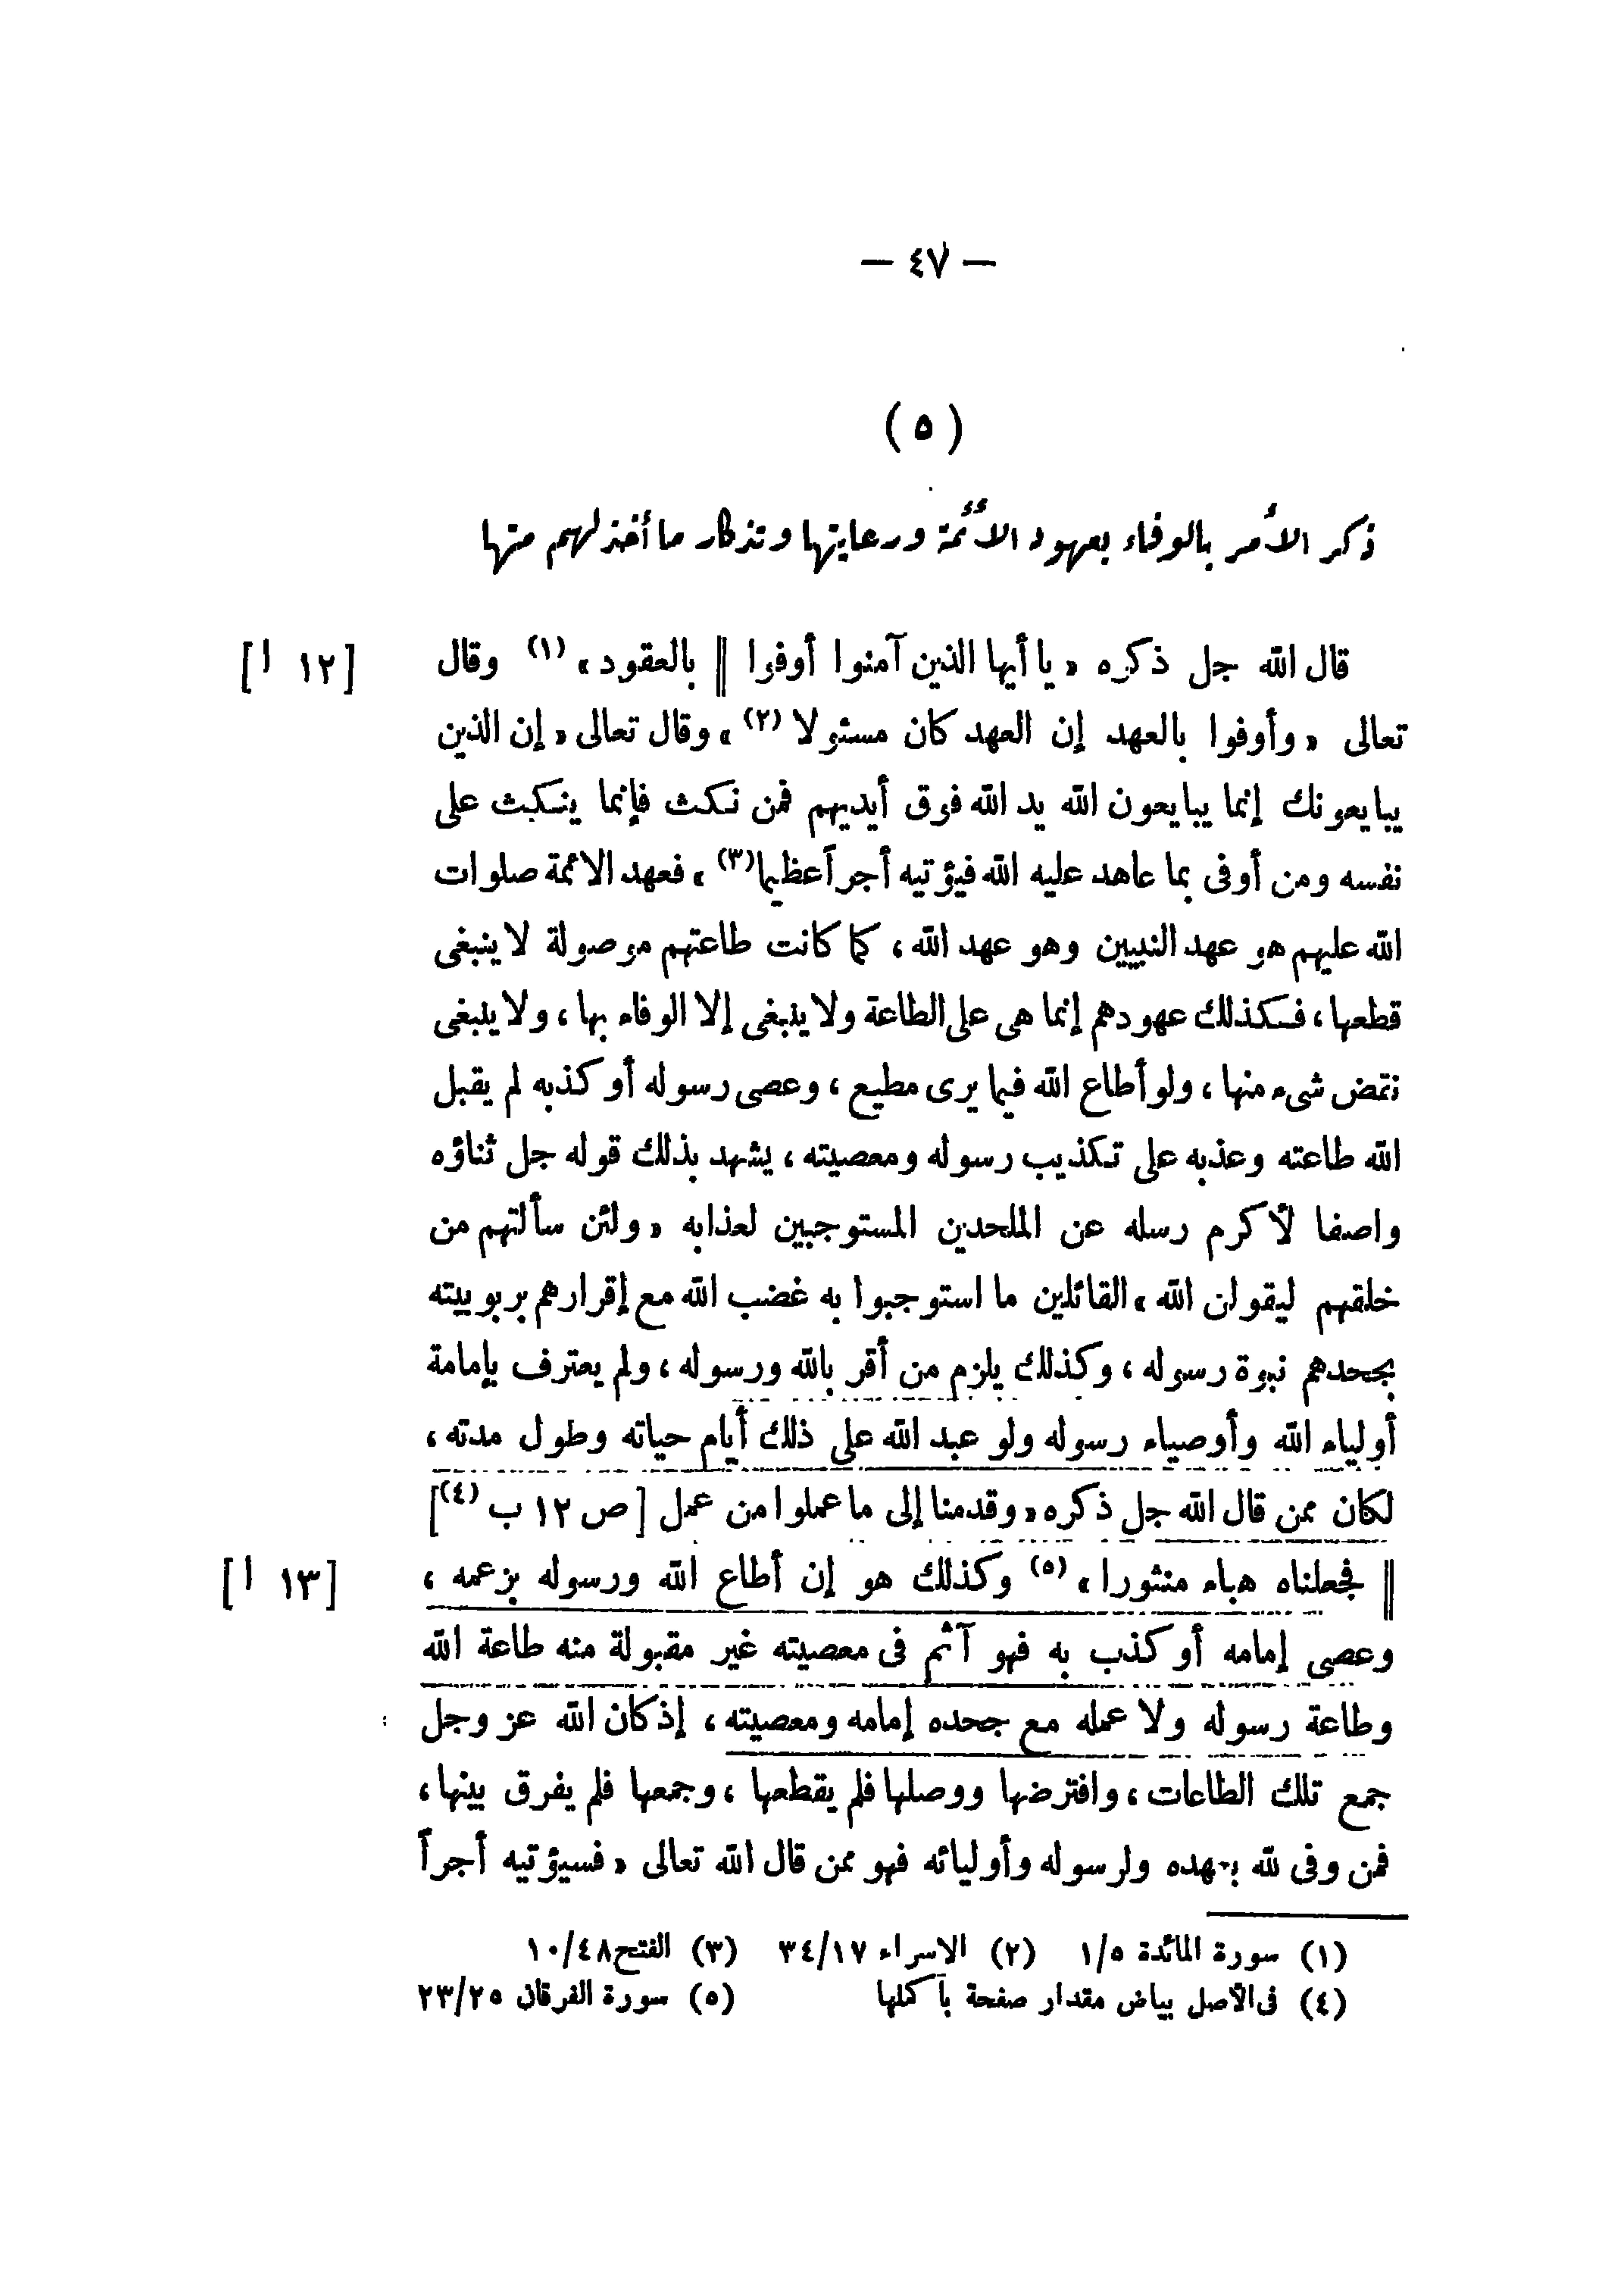 — ٤٧ —
( ٥ )
ذكر الأمر بالوفاء بعهود الأئمة ورعايتها وتذكار ما أخذ لهم منها
قال الله جل ذكره « يا أيها الذين آمنوا أوفوا || بالعقود » (١) وقال [ ١٢ ا ]
تعالى « وأوفوا بالعهد إن العهد كان مسئولا (٢) » وقال تعالى « إن الذين
يبايعونك إنما يبايعون الله يد الله فوق أيديهم فمن نكث فإنما ينكث على
نفسه ومن أوفى بما عاهد عليه الله فيؤتيه أجراً عظيما (٣) » فعهد الائمة صلوات
الله عليهم هو عهد النبيين وهو عهد الله ، كما كانت طاعتهم موصولة لا ينبغى
قطعها ، فكذلك عهودهم إنما هى على الطاعة ولا ينبغى إلا الوفاء بها ، ولا ينبغى
نقض شىء منها ، ولو أطاع الله فيما يرى مطيع ، وعصى رسوله أو كذبه لم يقبل
الله طاعته وعذبه على تكذيب رسوله ومعصيته ، يشهد بذلك قوله جل ثناؤه
واصفا لأكرم رسله عن الملحدين المستوجبين لعذابه « ولئن سألتهم من
خلقهم ليقولن الله » القائلين ما استوجبوا به غضب الله مع إقرارهم بربوبيته
بجحدهم نبوة رسوله ، وكذلك يلزم من أقر بالله ورسوله ، ولم يعترف بإمامة
أولياء الله وأوصياء رسوله ولو عبد الله على ذلك أيام حياته وطول مدته ،
لكان ممن قال الله جل ذكره « وقدمنا إلى ما عملوا من عمل [ ص ١٢ ب (٤) ]
|| فجعلناه هباء منثورا » (٥) وكذلك هو إن أطاع الله ورسوله بزعمه ، [ ١٣ ا ]
وعصى إمامه أو كذب به فهو آثم فى معصيته غير مقبولة منه طاعة الله
وطاعة رسوله ولا عمله مع جحده إمامه ومعصيته ، إذ كان الله عز وجل
جمع تلك الطاعات ، وافترضها ووصلها فلم يقطعها ، وجمعها فلم يفرق بينها ،
فمن وفى لله بعهده ولرسوله وأوليائه فهو ممن قال الله تعالى « فسيؤتيه أجراً
(١) سورة المائدة ١/٥ (٢) الاسراء ٣٤/١٧ (٣) الفتح ١٠/٤٨
(٤) فى الأصل بياض مقدار صفحة بأكملها (٥) سورة الفرقان ٢٣/٢٥